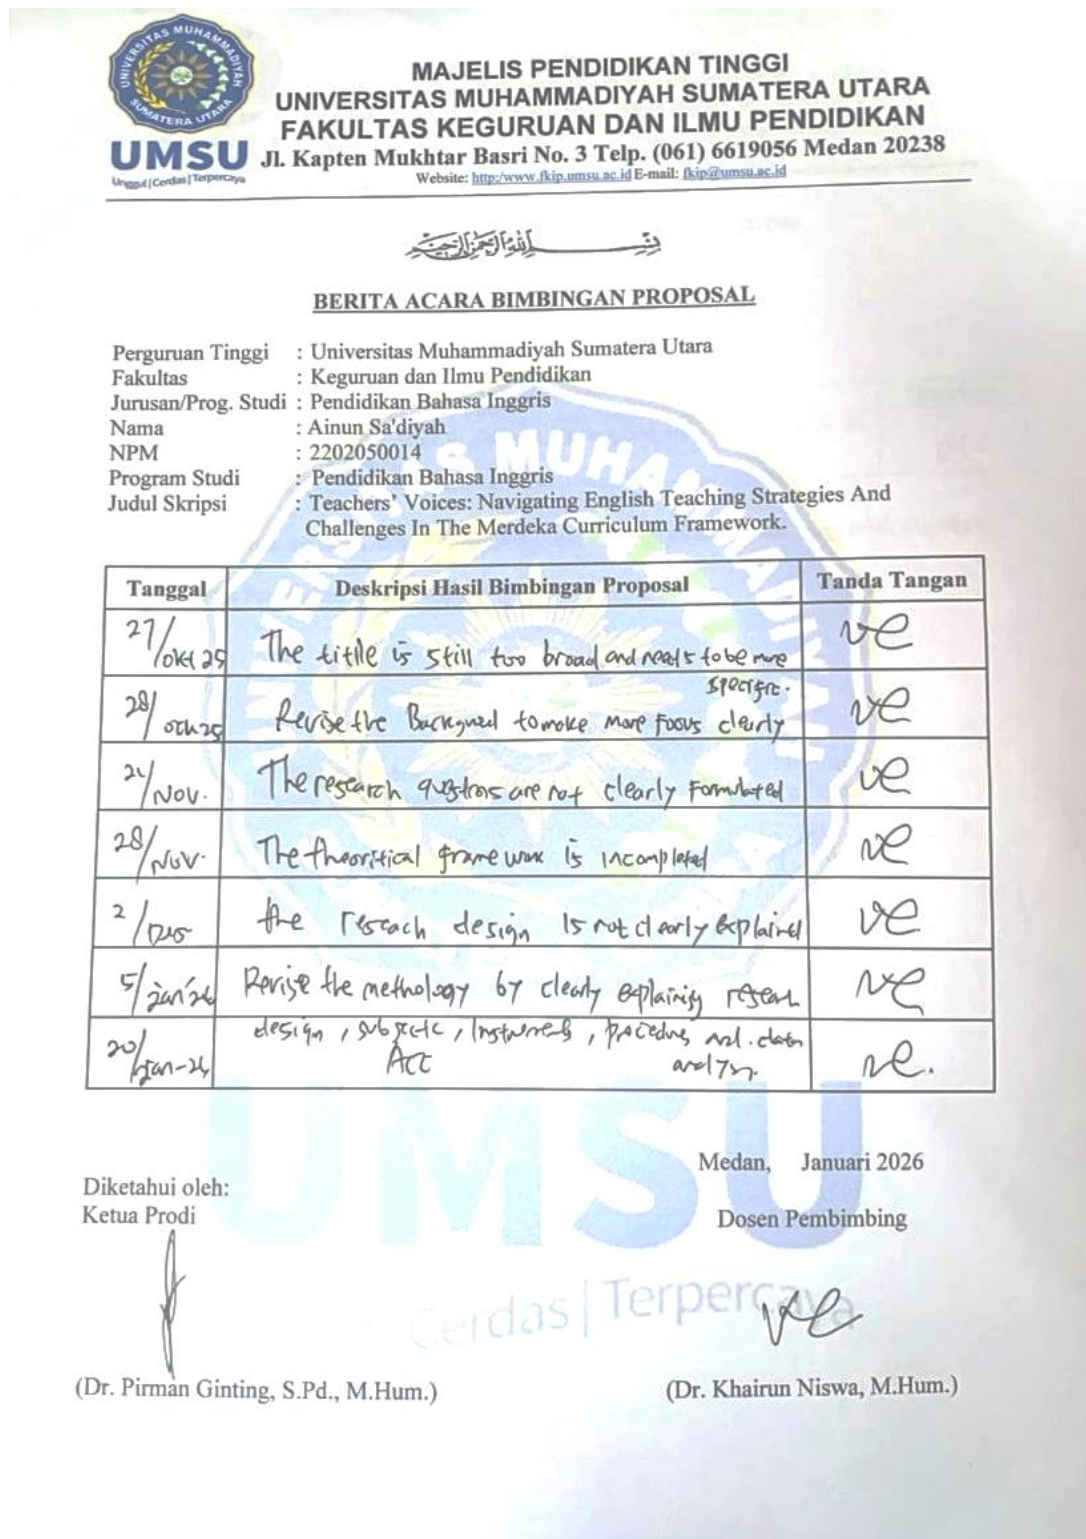 UNIVERSITAS MUHAMMADIYAH
SUMATERA UTARA
UMSU
Unggul | Cerdas | Terpercaya
MAJELIS PENDIDIKAN TINGGI
UNIVERSITAS MUHAMMADIYAH SUMATERA UTARA
FAKULTAS KEGURUAN DAN ILMU PENDIDIKAN
Jl. Kapten Mukhtar Basri No. 3 Telp. (061) 6619056 Medan 20238
Website: http:/www.fkip.umsu.ac.id E-mail: fkip@umsu.ac.id
بسم الله الرحمن الرحيم
BERITA ACARA BIMBINGAN PROPOSAL
Perguruan Tinggi : Universitas Muhammadiyah Sumatera Utara
Fakultas : Keguruan dan Ilmu Pendidikan
Jurusan/Prog. Studi : Pendidikan Bahasa Inggris
Nama : Ainun Sa'diyah
NPM : 2202050014
Program Studi : Pendidikan Bahasa Inggris
Judul Skripsi : Teachers' Voices: Navigating English Teaching Strategies And
Challenges In The Merdeka Curriculum Framework.
Tanggal Deskripsi Hasil Bimbingan Proposal Tanda Tangan
27/okt 25 The titile is still too broad and needs to be more
specific.
28/ Revise the to make more focus clearly
/Nov. The research questions are not clearly formulated
28/Nov. The theoritical framework is incompleted
2/Des the reseach design is not clearly explained
5/jan'26 Revise the methology by clearly explaining
design, instruments, data
20/jan-26 Acc
UMSU
Cerdas | Terpercaya
Medan, Januari 2026
Diketahui oleh:
Ketua Prodi
Dosen Pembimbing
(Dr. Pirman Ginting, S.Pd., M.Hum.)
(Dr. Khairun Niswa, M.Hum.)